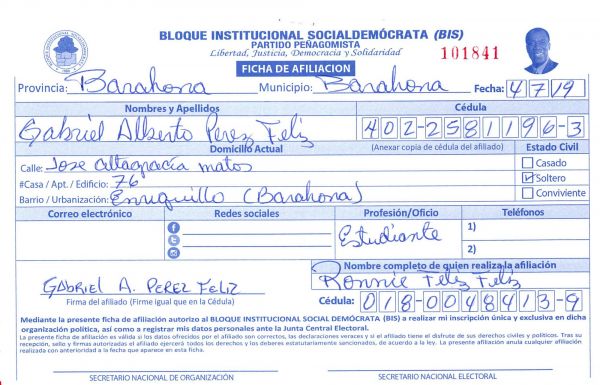 BLOQUE INSTITUCIONAL SOCIALDEMÓCRATA (BIS)
PARTIDO PEÑAGOMISTA
Libertad, Justicia, Democracia y Solidaridad
101841
FICHA DE AFILIACION
Provincia: Barahona Municipio: Barahona Fecha: 4/7/19
Nombres y Apellidos Cédula
Gabriel Alberto Perez Feliz 402-2581196-3
Domicilio Actual (Anexar copia de cédula del afiliado) Estado Civil
Calle: Jose altagracia matos Casado
#Casa / Apt. / Edificio: 76 Soltero
Barrio / Urbanización: Enriquillo (Barahona) Conviviente
Correo electrónico Redes sociales Profesión/Oficio Teléfonos
Estudiante 1)
2)
Nombre completo de quien realiza la afiliación
GABRIEL A. PEREZ FELIZ Ronnie Feliz Feliz
Firma del afiliado (Firme igual que en la Cédula) Cédula: 018-0048413-9
Mediante la presente ficha de afiliación autorizo al BLOQUE INSTITUCIONAL SOCIAL DEMÓCRATA (BIS) a realizar mi inscripción única y exclusiva en dicha
organización política, así como a registrar mis datos personales ante la Junta Central Electoral.
La presente ficha de afiliación es válida si los datos ofrecidos por el afiliado son correctos, las declaraciones veraces y si el afiliado tiene el disfrute de sus derechos civiles y políticos. Tras su
recepción, sello y firmas autorizadas el afiliado ejercerá todos los derechos y los deberes estatutariamente sancionados, de acuerdo a la ley. La presente afiliación anula cualquier afiliación
realizada con anterioridad a la fecha que aparece en esta ficha.
SECRETARIO NACIONAL DE ORGANIZACIÓN SECRETARIO NACIONAL ELECTORAL